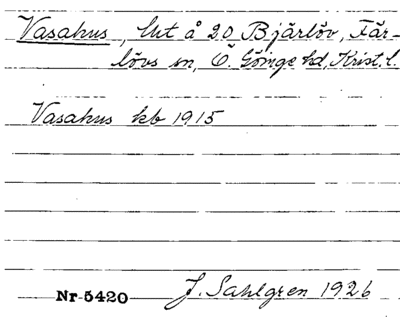 Vasahus, lht å 20 Bjärlöv, Fär-
lövs sn, Ö. Göinge hd, Krist. l.
Vasahus kb 1915
Nr 5420 J. Sahlgren 1926